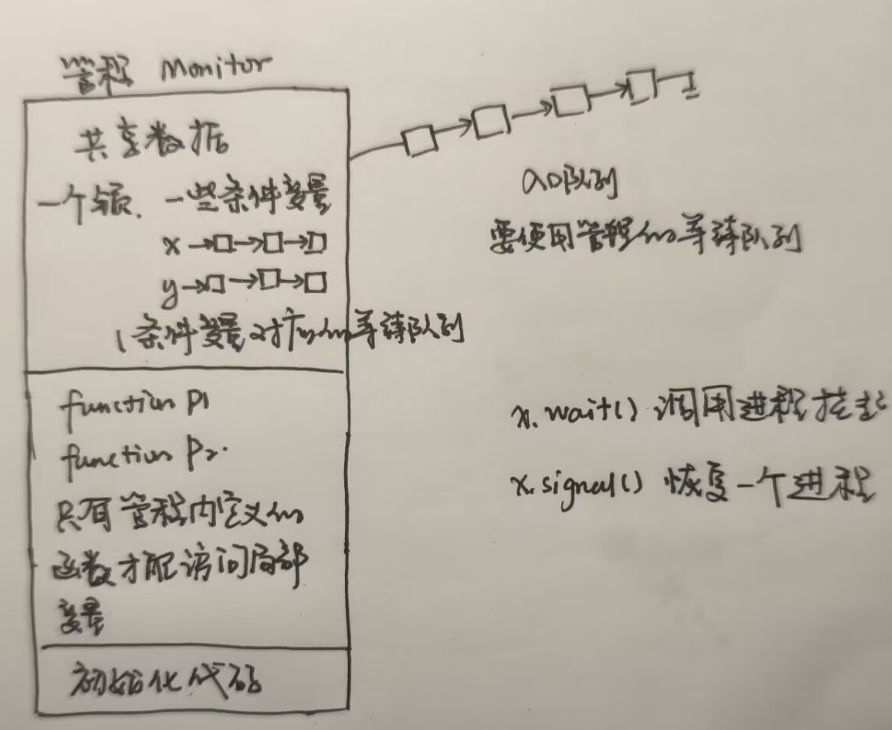 管程 Monitor
共享数据
一个锁、一些条件变量
x
y
条件变量对应的等待队列
入口队列
要使用管程的等待队列
function P1
function P2.
只有管程内定义的
函数才配访问局部
变量
初始化代码
x.wait() 调用进程挂起
x.signal() 恢复一个进程